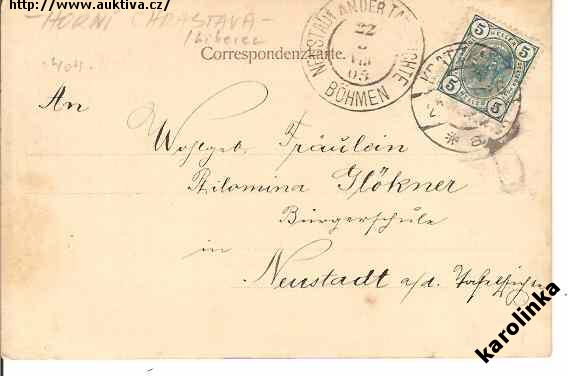 http://www.auktiva.cz/
-HORNÍ CHRASTAVA-
Liberec
-404-
Correspondenzkarte.
NEUSTADT AN DER TAFELFICHTE
22
VIII
05
BÖHMEN
5 HELLER 5
5 HELLER 5
An
Wohlgeb. Fräulein
Filomina Glökner
Bürgerschule
in
Neustadt a/d. Tafelfichte
karolinka